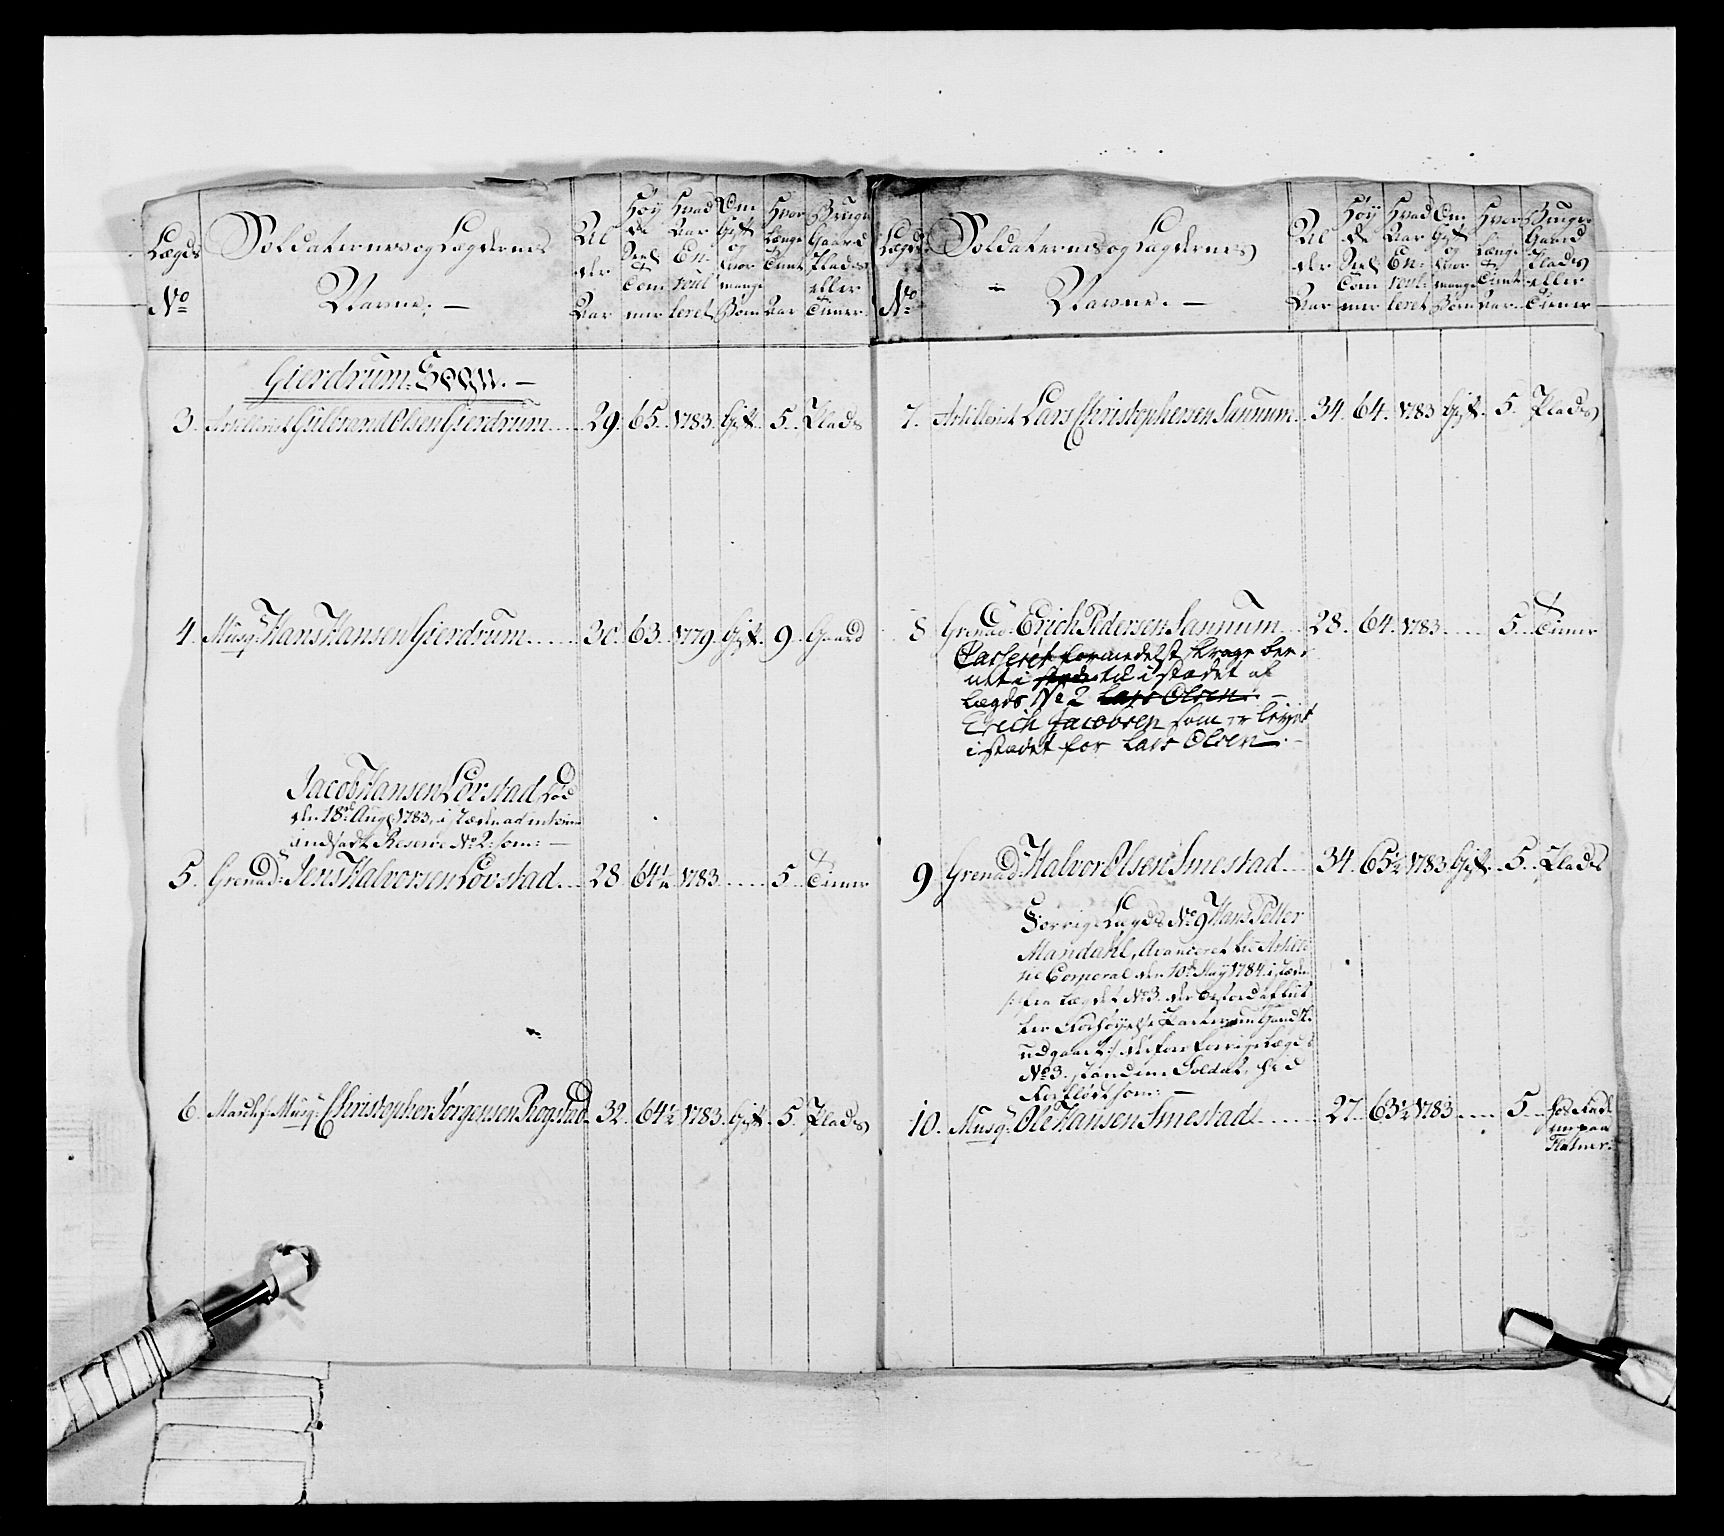 Lægds
No
Soldaternes og Lægdernes
Navne. —
Al
der
Aar
Høy
de
Com
mer
Hvad
Aar
En-
rul
leret
Om
Gift
og
hvor
mange
Børn
Hvor
længe
tient
Aar
Bruger
Gaard
Plads
eller
Tiener
Gierdrum Sogn. —
3. Artillerist Gulbrand Olsen Gierdrum 29. 65. 1783. Gift. 5. Plads
4. Musq: Hans Hansen Gierdrum 30. 63. 1779. Gift. 9. Gaard
Jacob Hansen Lovstad, død
den 18de Aug: 1783, i steden ad interim
indsadt Reserve No 2. som: —
5. Grenad: Jens Halvorsen Lovstad 28. 64½ 1783. 5. Tiener
6. Musq: Christopher Jørgensen Rogstad 32. 64½ 1783. Gift. 5. Plads
Lægds
No
Soldaternes og Lægdernes
Navne. —
Al
der
Aar
Høy
de
Com
mer
Hvad
Aar
En-
rul-
leret
Om
Gift
og
hvor
mange
Børn
Hver
længe
tient
Aar
Bruger
Gaard
Plads
eller
Tiener
7. Artillerist Lars Christophersen Sannum 34. 64. 1783 Gift. 5. Plads
8 Grenad: Erich Pedersen Sannum 28. 64. 1783 5. Tiener
Casseret formedelst
i stædet af
Lægds No 2 Lars Olsen. —
Erich Jacobsen som er
i stædet for Lars Olsen. —
9 Grenad: Halvor Olsen Smestad 34. 65½ 1783 Gift. 5. Plads
Forrige Lægds No 9 Hans Petter
Mandahl, Avanceret til Artille
rie Corporal den 10de May 1784. i steden
No 3.
udgaaet
No 3. Soldat,
som: —
10. Musq: Ole Hansen Smestad 27. 63½ 1783 5.